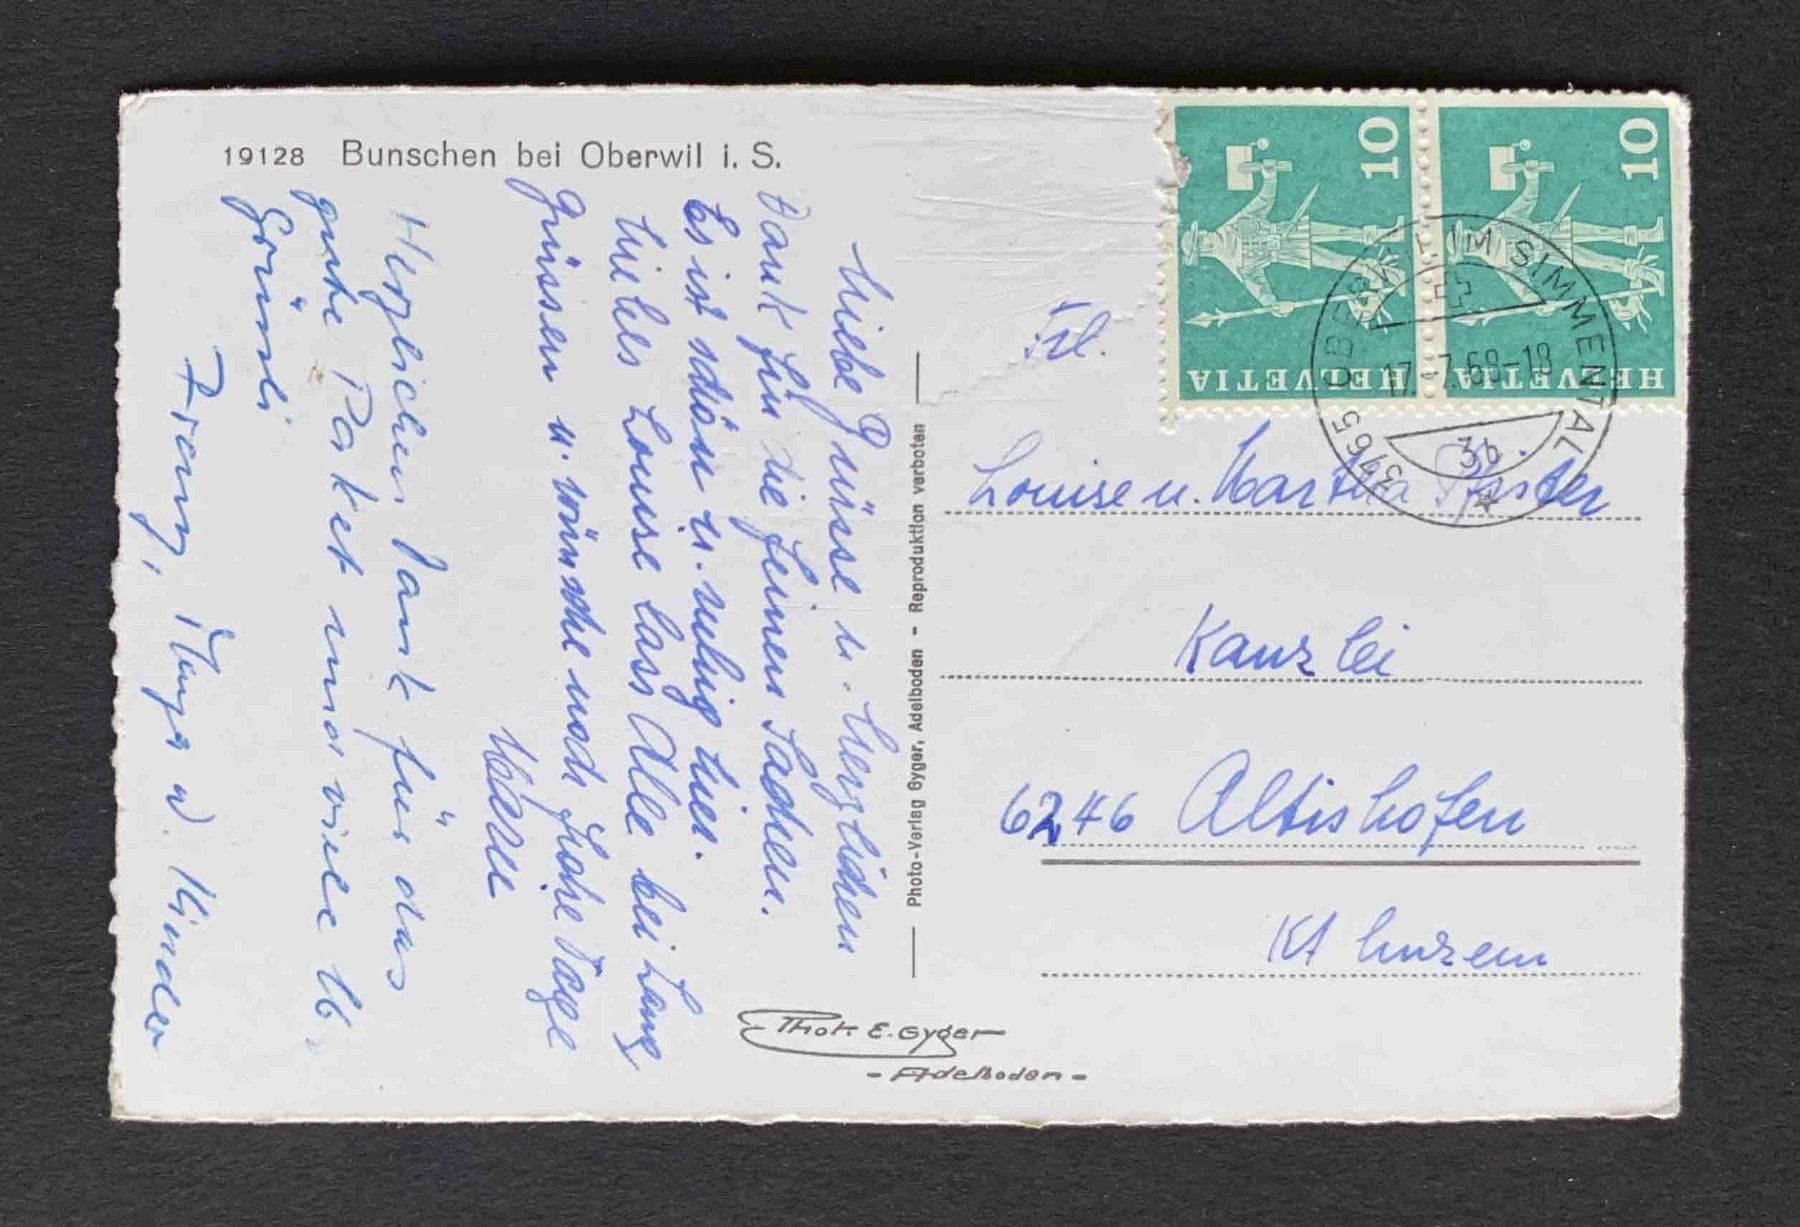 19128 Bunschen bei Oberwil i. S.
Liebe Grüsse u. herzlichen
Dank für die feinen Sachen.
Es ist schön u. ruhig hier.
Liebes Louise lass Alle bei Lang
grüssen u. wünsche noch frohe Tage
Herzlichen Dank für das
gute Paket und viele
Grüssli
Franz, u. Kinder
Photo-Verlag Gyger, Adelboden - Reproduktion verboten
Thok E. Gyger
- Adelboden -
HELVETIA 10
HELVETIA 10
3765 OBERWIL IM SIMMENTAL
17.-7.68-18
3b
Frl.
Louise u. Martha Pfister
Kanzlei
6246 Altishofen
Kt Luzern